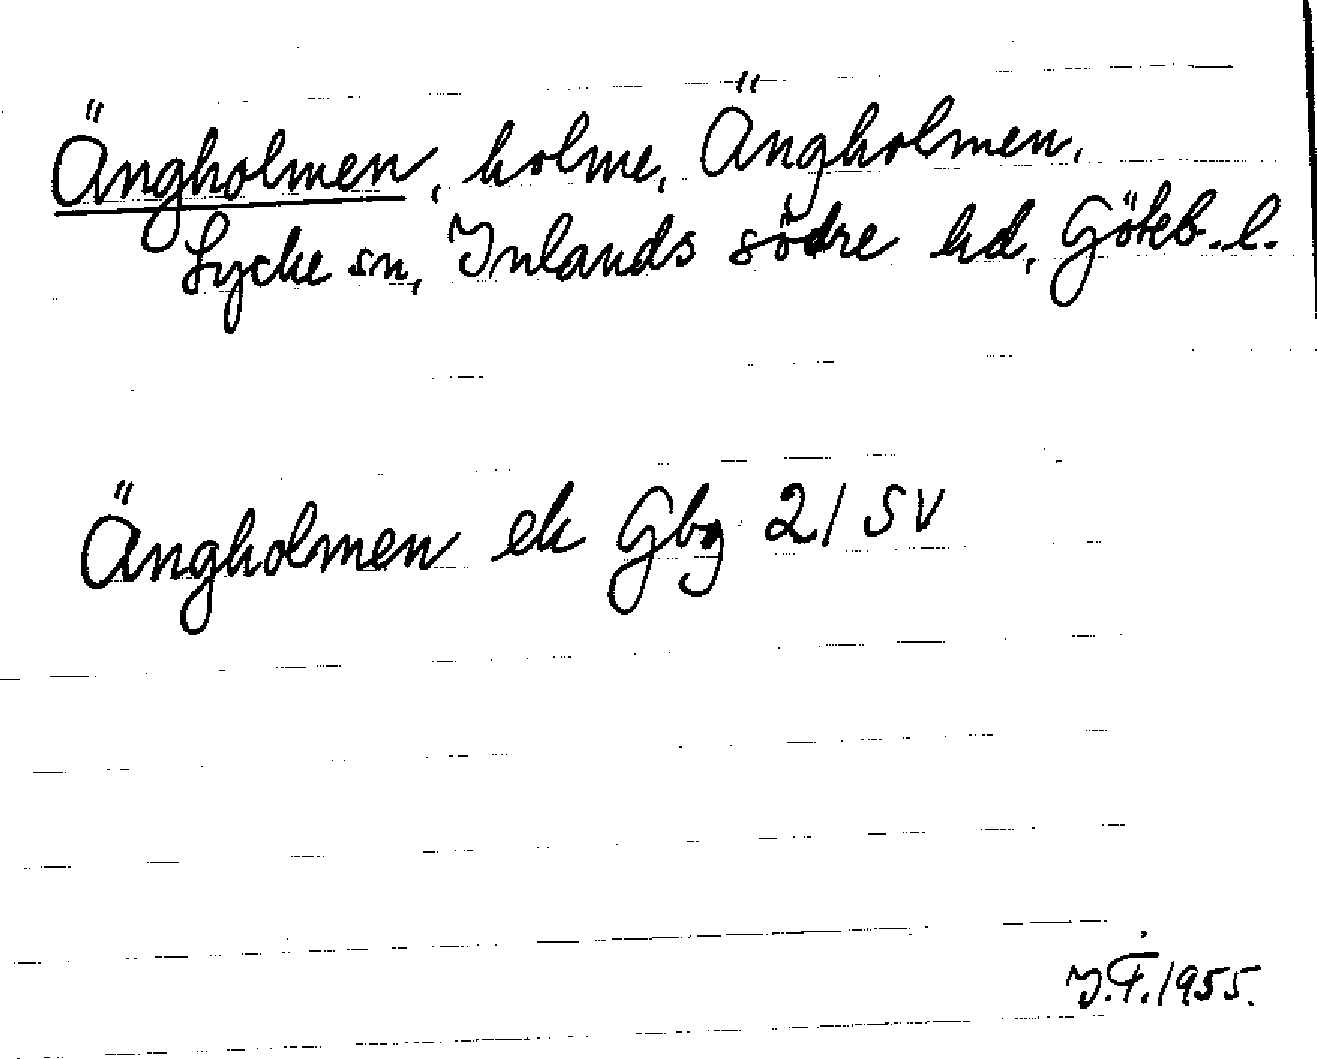 Ängholmen, holme, Ängholmen,
Lycke sn, Inlands södre hd, Göteb. l.
Ängholmen ek Gbg 21 SV
I.F. 1955.